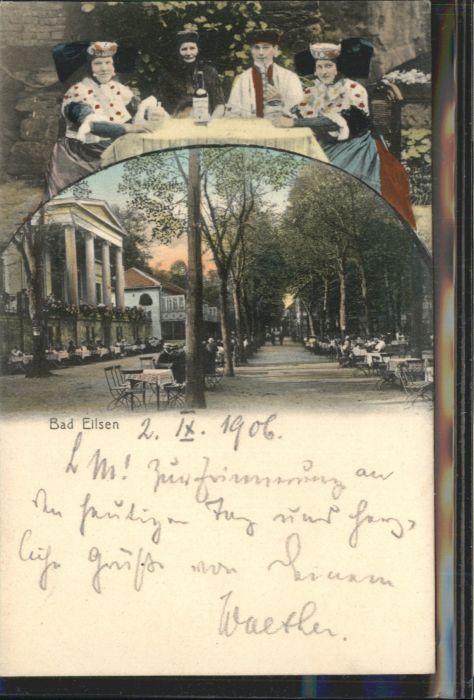 Bad Eilsen
2. IX. 1906.
L M! Zur Erinnerung an
den heutigen Tag und herz-
liche Grüße von Deinem
Walther.